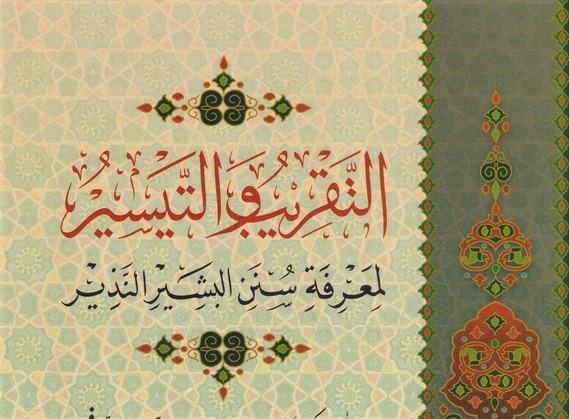 التَّقْرِيبُ وَالتَّيْسِيرُ
لِمَعْرِفَةِ سُنَنِ الْبَشِيرِ النَّذِيرِ